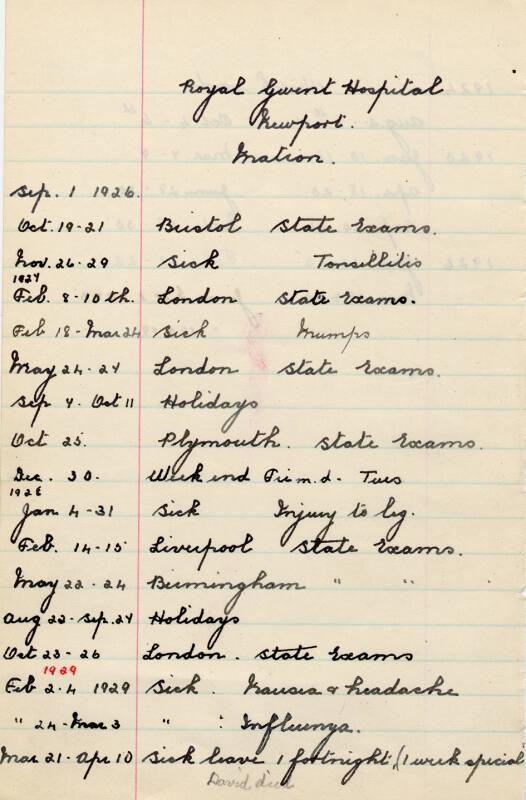 Royal Gwent Hospital
Newport.
Matron.
Sep. 1 1926.
Oct. 19-21 Bristol State Exams.
Nov. 26-29 Sick Tonsillitis
1927
Feb. 8-10th. London State Exams.
Feb 18-Mar 24 Sick Mumps
May 24-27 London State Exams.
Sep 7. Oct 11 Holidays
Oct 25. Plymouth. State Exams.
Dec. 30. Week end Fri m.d. Tues
1928
Jan 4-31 Sick Injury to leg.
Feb. 14-15 Liverpool State Exams.
May 22-24 Birmingham " "
Aug 22-Sep. 27 Holidays
Oct 23-26 London. State Exams
1929
Feb 2-4 1929 Sick. Nausea & headache
" 24-Mar 3 " : Influenza.
Mar 21-Apr 10 Sick leave 1 fortnight, (1 week special
David died